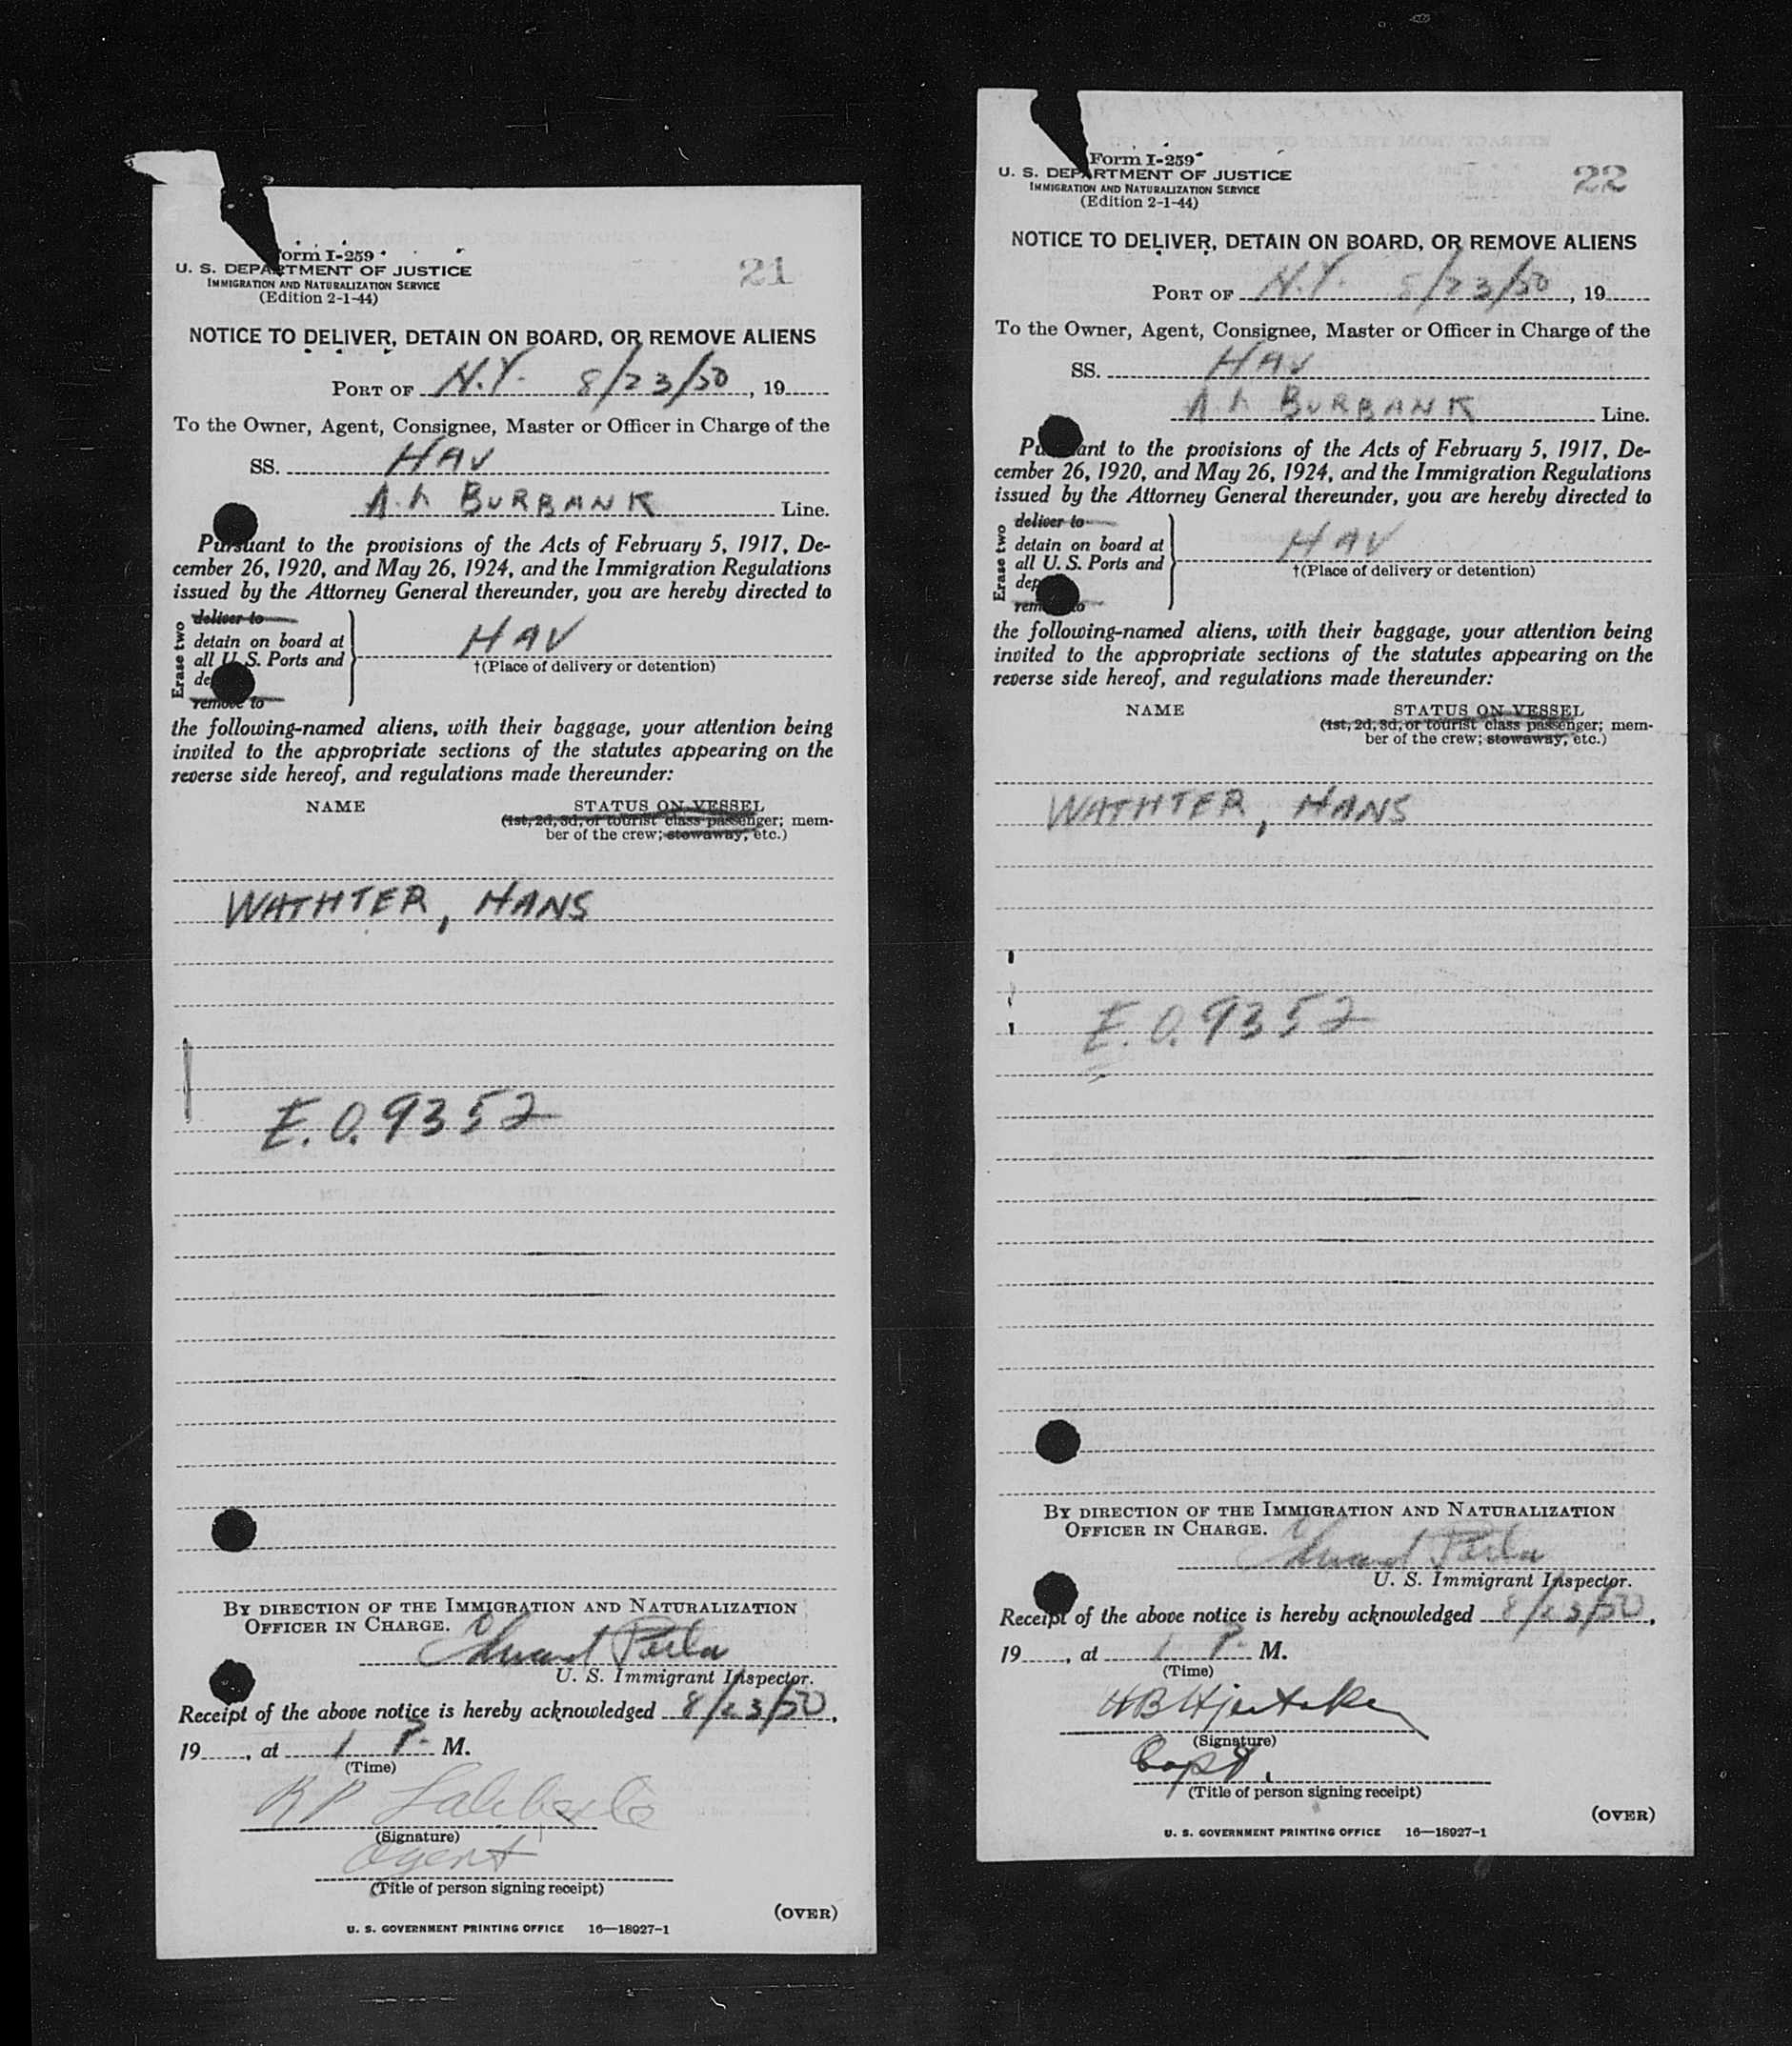 Form I-259
U. S. DEPARTMENT OF JUSTICE
IMMIGRATION AND NATURALIZATION SERVICE
(Edition 2-1-44)
21
NOTICE TO DELIVER, DETAIN ON BOARD, OR REMOVE ALIENS
PORT OF N.Y. 8/23/50, 19
To the Owner, Agent, Consignee, Master or Officer in Charge of the
SS. HAV
BURBANK Line.
Pursuant to the provisions of the Acts of February 5, 1917, De-
cember 26, 1920, and May 26, 1924, and the Immigration Regulations
issued by the Attorney General thereunder, you are hereby directed to
Erase two
deliver to
detain on board at
all U. S. Ports and
de
remove to
HAV
†(Place of delivery or detention)
the following-named aliens, with their baggage, your attention being
invited to the appropriate sections of the statutes appearing on the
reverse side hereof, and regulations made thereunder:
NAME STATUS ON VESSEL
(1st, 2d, 3d, or tourist class passenger; mem-
ber of the crew; stowaway, etc.)
WATHTER, HANS
E.O. 9352
BY DIRECTION OF THE IMMIGRATION AND NATURALIZATION
OFFICER IN CHARGE.
Edward
U. S. Immigrant Inspector.
Receipt of the above notice is hereby acknowledged 8/23/50,
19, at 1 P. M.
(Time)
R P
(Signature)
Agent
(Title of person signing receipt)
(OVER)
U. S. GOVERNMENT PRINTING OFFICE 16—18927-1
Form I-259
U. S. DEPARTMENT OF JUSTICE
IMMIGRATION AND NATURALIZATION SERVICE
(Edition 2-1-44)
22
NOTICE TO DELIVER, DETAIN ON BOARD, OR REMOVE ALIENS
PORT OF N.Y. 8/23/50, 19
To the Owner, Agent, Consignee, Master or Officer in Charge of the
SS. HAV
BURBANK Line.
Pursuant to the provisions of the Acts of February 5, 1917, De-
cember 26, 1920, and May 26, 1924, and the Immigration Regulations
issued by the Attorney General thereunder, you are hereby directed to
Erase two
deliver to
detain on board at
all U. S. Ports and
dep
remove to
HAV
†(Place of delivery or detention)
the following-named aliens, with their baggage, your attention being
invited to the appropriate sections of the statutes appearing on the
reverse side hereof, and regulations made thereunder:
NAME STATUS ON VESSEL
(1st, 2d, 3d, or tourist class passenger; mem-
ber of the crew; stowaway, etc.)
WATHTER, HANS
E.O. 9352
BY DIRECTION OF THE IMMIGRATION AND NATURALIZATION
OFFICER IN CHARGE.
Edward
U. S. Immigrant Inspector.
Receipt of the above notice is hereby acknowledged 8/23/50,
19, at 1 P. M.
(Time)
(Signature)
Capt.
(Title of person signing receipt)
(OVER)
U. S. GOVERNMENT PRINTING OFFICE 16—18927-1